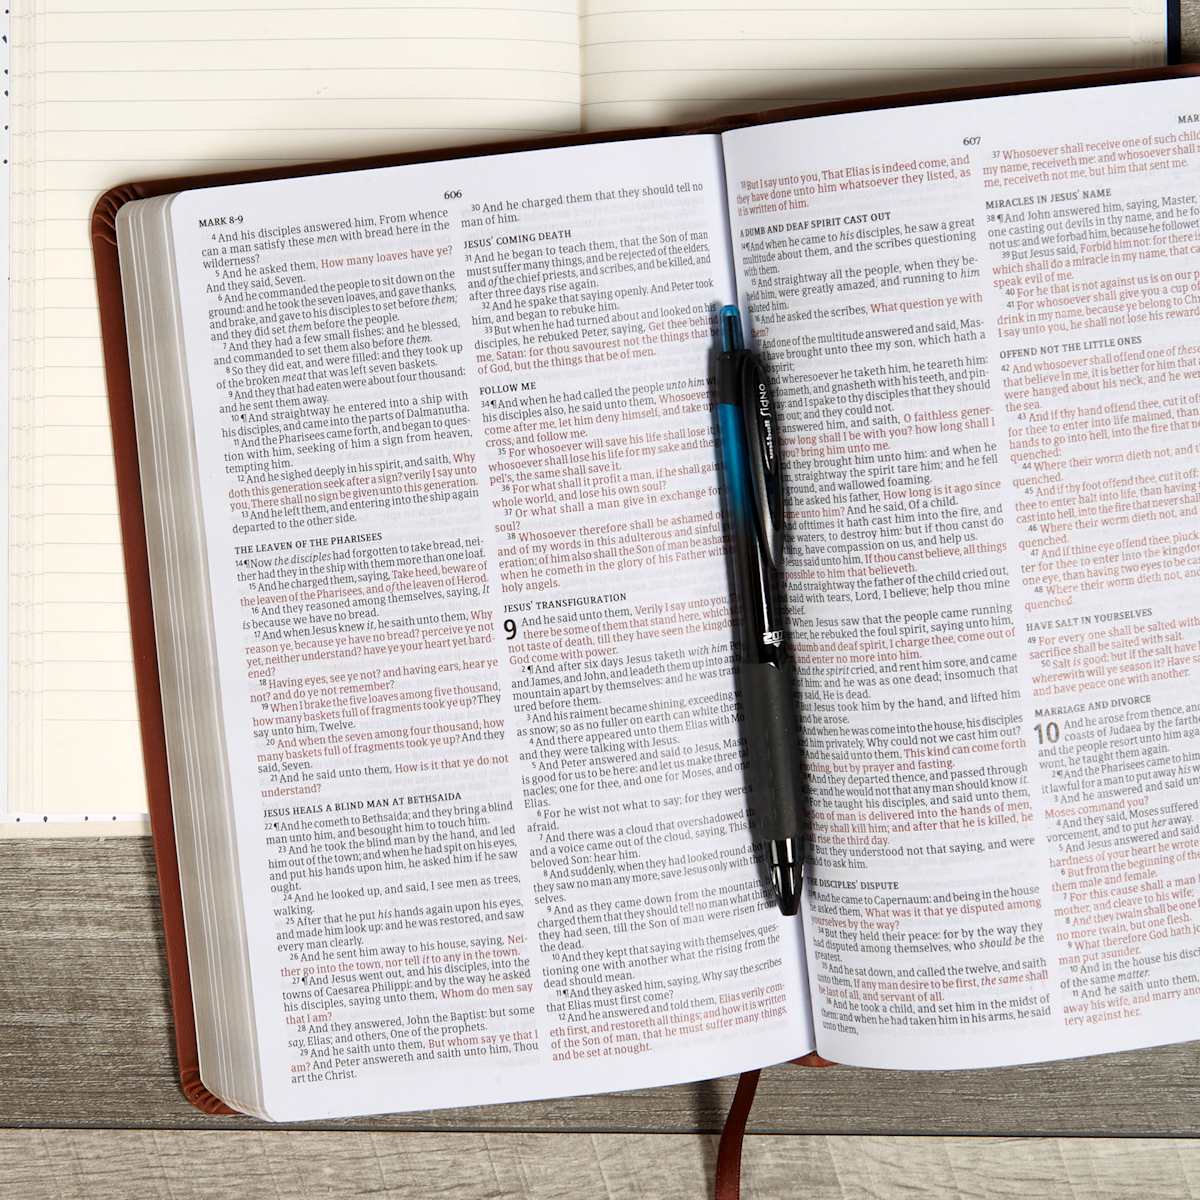 606
MARK 8-9
4 And his disciples answered him, From whence
can a man satisfy these men with bread here in the
wilderness?
5 And he asked them, How many loaves have ye?
And they said, Seven.
6 And he commanded the people to sit down on the
ground: and he took the seven loaves, and gave thanks,
and brake, and gave to his disciples to set before them;
and they did set them before the people.
7 And they had a few small fishes: and he blessed,
and commanded to set them also before them.
8 So they did eat, and were filled: and they took up
of the broken meat that was left seven baskets.
9 And they that had eaten were about four thousand:
and he sent them away.
10 ¶And straightway he entered into a ship with
his disciples, and came into the parts of Dalmanutha.
11 And the Pharisees came forth, and began to ques-
tion with him, seeking of him a sign from heaven,
tempting him.
12 And he sighed deeply in his spirit, and saith, Why
doth this generation seek after a sign? verily I say unto
you, There shall no sign be given unto this generation.
13 And he left them, and entering into the ship again
departed to the other side.
THE LEAVEN OF THE PHARISEES
14 ¶Now the disciples had forgotten to take bread, nei-
ther had they in the ship with them more than one loaf.
15 And he charged them, saying, Take heed, beware of
the leaven of the Pharisees, and of the leaven of Herod.
16 And they reasoned among themselves, saying, It
is because we have no bread.
17 And when Jesus knew it, he saith unto them, Why
reason ye, because ye have no bread? perceive ye not
yet, neither understand? have ye your heart yet hard-
ened?
18 Having eyes, see ye not? and having ears, hear ye
not? and do ye not remember?
19 When I brake the five loaves among five thousand,
how many baskets full of fragments took ye up? They
say unto him, Twelve.
20 And when the seven among four thousand, how
many baskets full of fragments took ye up? And they
said, Seven.
21 And he said unto them, How is it that ye do not
understand?
JESUS HEALS A BLIND MAN AT BETHSAIDA
22 ¶And he cometh to Bethsaida; and they bring a blind
man unto him, and besought him to touch him.
23 And he took the blind man by the hand, and led
him out of the town; and when he had spit on his eyes,
and put his hands upon him, he asked him if he saw
ought.
24 And he looked up, and said, I see men as trees,
walking.
25 After that he put his hands again upon his eyes,
and made him look up: and he was restored, and saw
every man clearly.
26 And he sent him away to his house, saying, Nei-
ther go into the town, nor tell it to any in the town.
27 ¶And Jesus went out, and his disciples, into the
towns of Caesarea Philippi: and by the way he asked
his disciples, saying unto them, Whom do men say
that I am?
28 And they answered, John the Baptist: but some
say, Elias; and others, One of the prophets.
29 And he saith unto them, But whom say ye that I
am? And Peter answereth and saith unto him, Thou
art the Christ.
30 And he charged them that they should tell no
man of him.
JESUS' COMING DEATH
31 And he began to teach them, that the Son of man
must suffer many things, and be rejected of the elders,
and of the chief priests, and scribes, and be killed, and
after three days rise again.
32 And he spake that saying openly. And Peter took
him, and began to rebuke him.
33 But when he had turned about and looked on his
disciples, he rebuked Peter, saying, Get thee behind
me, Satan: for thou savourest not the things that be
of God, but the things that be of men.
FOLLOW ME
34 ¶And when he had called the people unto him
his disciples also, he said unto them, Whosoever
come after me, let him deny himself, and take up
cross, and follow me.
35 For whosoever will save his life shall lose it;
whosoever shall lose his life for my sake and the
pel's, the same shall save it.
36 For what shall it profit a man, if he shall gain
whole world, and lose his own soul?
37 Or what shall a man give in exchange for
soul?
38 Whosoever therefore shall be ashamed of
and of my words in this adulterous and sinful
eration; of him also shall the Son of man be asham
when he cometh in the glory of his Father with
holy angels.
JESUS' TRANSFIGURATION
9 And he said unto them, Verily I say unto you,
there be some of them that stand here, which
not taste of death, till they have seen the kingdom
God come with power.
2 ¶And after six days Jesus taketh with him
and James, and John, and leadeth them up into an
mountain apart by themselves: and he was trans
ured before them.
3 And his raiment became shining, exceeding
as snow; so as no fuller on earth can white them.
4 And there appeared unto them Elias with Mo
and they were talking with Jesus.
5 And Peter answered and said to Jesus, Mast
is good for us to be here: and let us make three ta
nacles; one for thee, and one for Moses, and one
Elias.
6 For he wist not what to say; for they were
afraid.
7 And there was a cloud that overshadowed
and a voice came out of the cloud, saying, This
beloved Son: hear him.
8 And suddenly, when they had looked round abo
they saw no man any more, save Jesus only with
selves.
9 And as they came down from the mountain,
charged them that they should tell no man what thing
they had seen, till the Son of man were risen from
the dead.
10 And they kept that saying with themselves, ques-
tioning one with another what the rising from the
dead should mean.
11 ¶And they asked him, saying, Why say the scribes
that Elias must first come?
12 And he answered and told them, Elias verily com-
eth first, and restoreth all things; and how it is written
of the Son of man, that he must suffer many things,
and be set at nought.
607
MAR
13 But I say unto you, That Elias is indeed come, and
they have done unto him whatsoever they listed, as
it is written of him.
A DUMB AND DEAF SPIRIT CAST OUT
14 ¶And when he came to his disciples, he saw a great
multitude about them, and the scribes questioning
with them.
15 And straightway all the people, when they be-
held him, were greatly amazed, and running to him
saluted him.
16 And he asked the scribes, What question ye with
them?
And one of the multitude answered and said, Mas-
I have brought unto thee my son, which hath a
spirit;
And wheresoever he taketh him, he teareth him:
foameth, and gnasheth with his teeth, and pin-
away: and I spake to thy disciples that they should
him out; and they could not.
answered him, and saith, O faithless gener-
how long shall I be with you? how long shall I
you? bring him unto me.
they brought him unto him: and when he
him, straightway the spirit tare him; and he fell
ground, and wallowed foaming.
he asked his father, How long is it ago since
came unto him? And he said, Of a child.
And ofttimes it hath cast him into the fire, and
the waters, to destroy him: but if thou canst do
thing, have compassion on us, and help us.
Jesus said unto him, If thou canst believe, all things
possible to him that believeth.
And straightway the father of the child cried out,
said with tears, Lord, I believe; help thou mine
belief.
When Jesus saw that the people came running
ther, he rebuked the foul spirit, saying unto him,
dumb and deaf spirit, I charge thee, come out of
and enter no more into him.
And the spirit cried, and rent him sore, and came
of him: and he was as one dead; insomuch that
said, He is dead.
But Jesus took him by the hand, and lifted him
and he arose.
And when he was come into the house, his disciples
him privately, Why could not we cast him out?
And he said unto them, This kind can come forth
nothing, but by prayer and fasting.
And they departed thence, and passed through
and he would not that any man should know it.
For he taught his disciples, and said unto them,
Son of man is delivered into the hands of men,
they shall kill him; and after that he is killed, he
shall rise the third day.
But they understood not that saying, and were
afraid to ask him.
THE DISCIPLES' DISPUTE
And he came to Capernaum: and being in the house
he asked them, What was it that ye disputed among
yourselves by the way?
34 But they held their peace: for by the way they
had disputed among themselves, who should be the
greatest.
35 And he sat down, and called the twelve, and saith
unto them, If any man desire to be first, the same shall
be last of all, and servant of all.
36 And he took a child, and set him in the midst of
them: and when he had taken him in his arms, he said
unto them,
37 Whosoever shall receive one of such child
my name, receiveth me: and whosoever shall
me, receiveth not me, but him that sent me.
MIRACLES IN JESUS' NAME
38 ¶And John answered him, saying, Master,
one casting out devils in thy name, and he fo
not us: and we forbad him, because he followe
39 But Jesus said, Forbid him not: for there is
which shall do a miracle in my name, that ca
speak evil of me.
40 For he that is not against us is on our p
41 For whosoever shall give you a cup of
drink in my name, because ye belong to Ch
I say unto you, he shall not lose his rewar
OFFEND NOT THE LITTLE ONES
42 And whosoever shall offend one of these
that believe in me, it is better for him tha
were hanged about his neck, and he we
the sea.
43 And if thy hand offend thee, cut it off
for thee to enter into life maimed, than
hands to go into hell, into the fire that ne
quenched:
44 Where their worm dieth not, and
quenched.
45 And if thy foot offend thee, cut it off
thee to enter halt into life, than having
cast into hell, into the fire that never shall
46 Where their worm dieth not, and
quenched.
47 And if thine eye offend thee, pluck
ter for thee to enter into the kingdom
one eye, than having two eyes to be ca
48 Where their worm dieth not, and
quenched.
HAVE SALT IN YOURSELVES
49 For every one shall be salted with
sacrifice shall be salted with salt.
50 Salt is good: but if the salt have
wherewith will ye season it? Have s
and have peace one with another.
MARRIAGE AND DIVORCE
10 And he arose from thence, an
coasts of Judaea by the farth
and the people resort unto him again
wont, he taught them again.
2 ¶And the Pharisees came to him
it lawful for a man to put away his w
3 And he answered and said unto
Moses command you?
4 And they said, Moses suffered
vorcement, and to put her away.
5 And Jesus answered and said
hardness of your heart he wrote
6 But from the beginning of the
them male and female.
7 For this cause shall a man l
mother, and cleave to his wife;
8 And they twain shall be one
no more twain, but one flesh.
9 What therefore God hath jo
man put asunder.
10 And in the house his disc
of the same matter.
11 And he saith unto them,
away his wife, and marry anot
tery against her.
uniball Signo
207